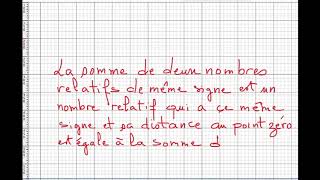 La somme de deux nombres
relatifs de même signe est un
nombre relatif qui a ce même
signe et sa distance au point zéro
est égale à la somme d